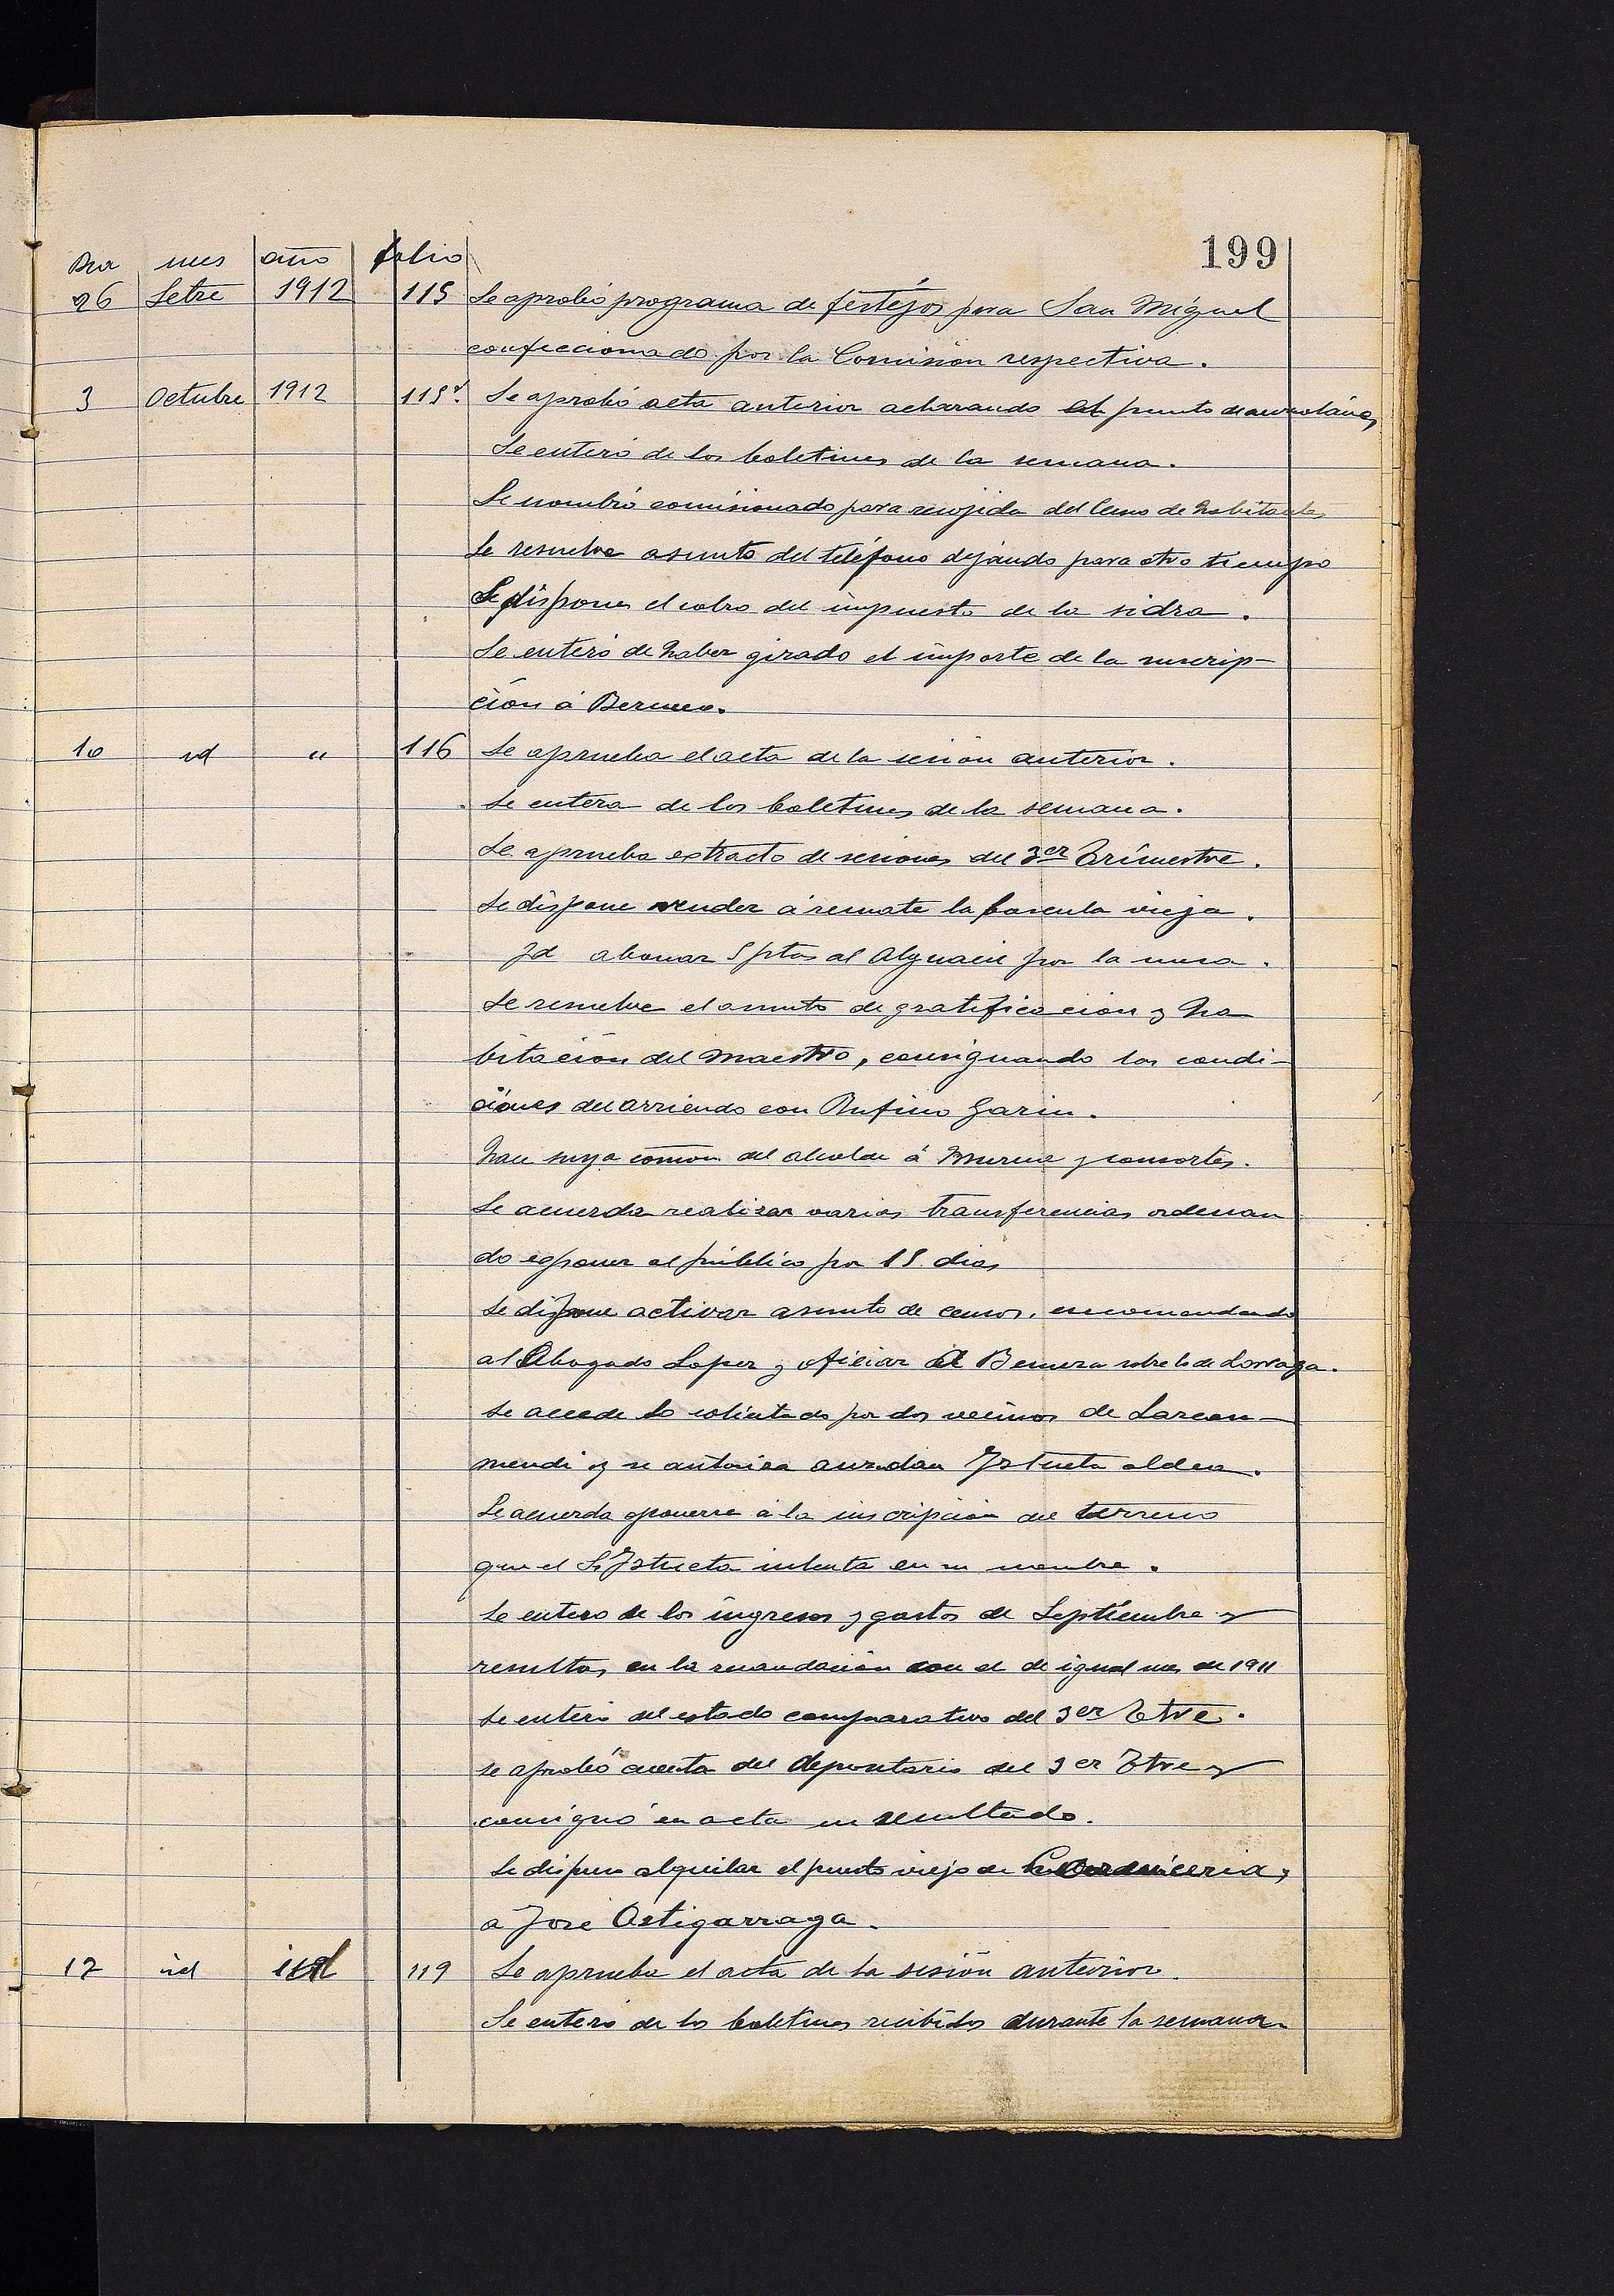 199
Dia mes año folio
26 Setre 1912 115 Se aprobó programa de festejos para San Miguel
confeccionado por la Comisión respectiva.
3 Octubre 1912 115v. Se aprobó acta anterior aclarando el punto de
Se enteró de los boletines de la semana.
Se nombró comisionado para recojida del Censo de habitantes
Se resuelve asunto del teléfono dejando para otro tiempo
Se dispone el cobro del impuesto de la sidra.
Se enteró de haber girado el importe de la suscrip-
ción á Bermeo.
10 id " 116 Se aprueba el acta de la sesión anterior.
Se entera de los boletines de la semana.
Se aprueba extracto de sesiones del 3er Trimestre.
Se dispone vender á remate la bascula vieja.
Id abonar 5 ptas al Alguacil por la
Se resuelve el asunto de gratificacion y ha
bitación del Maestro, consignando las condi-
ciones del arriendo con Rufino Garin.
hace suya del alcalde á y consortes.
Se acuerda realizar varias transferencias ordenan
do exponer al público por 15 dias
Se dispone activar asunto de censos, encomendando
al Abogado Lopez y oficiar á sobre lo de Lorraga.
Se accede lo solicitado por dos vecinos de Larcan-
mendi y se autoriza Iztueta aldea.
Se acuerda oponerse á la inscripción del terreno
que el Sr Iztueta intenta en su nombre.
Se entero de los ingresos y gastos de Septiembre y
resultas en la recaudación con el de igual mes de 1911
Se enteró del estado comparativo del 3er Etre.
se aprobó cuenta del depositario del 3er Etre y
consignó en acta su resultado.
Se dispuso alquilar el puesto viejo de Carniceria,
á José Astigarraga.
17 id id 119 Se aprueba el acta de la sesión anterior.
Se enteró de los boletines recibidos durante la semana.